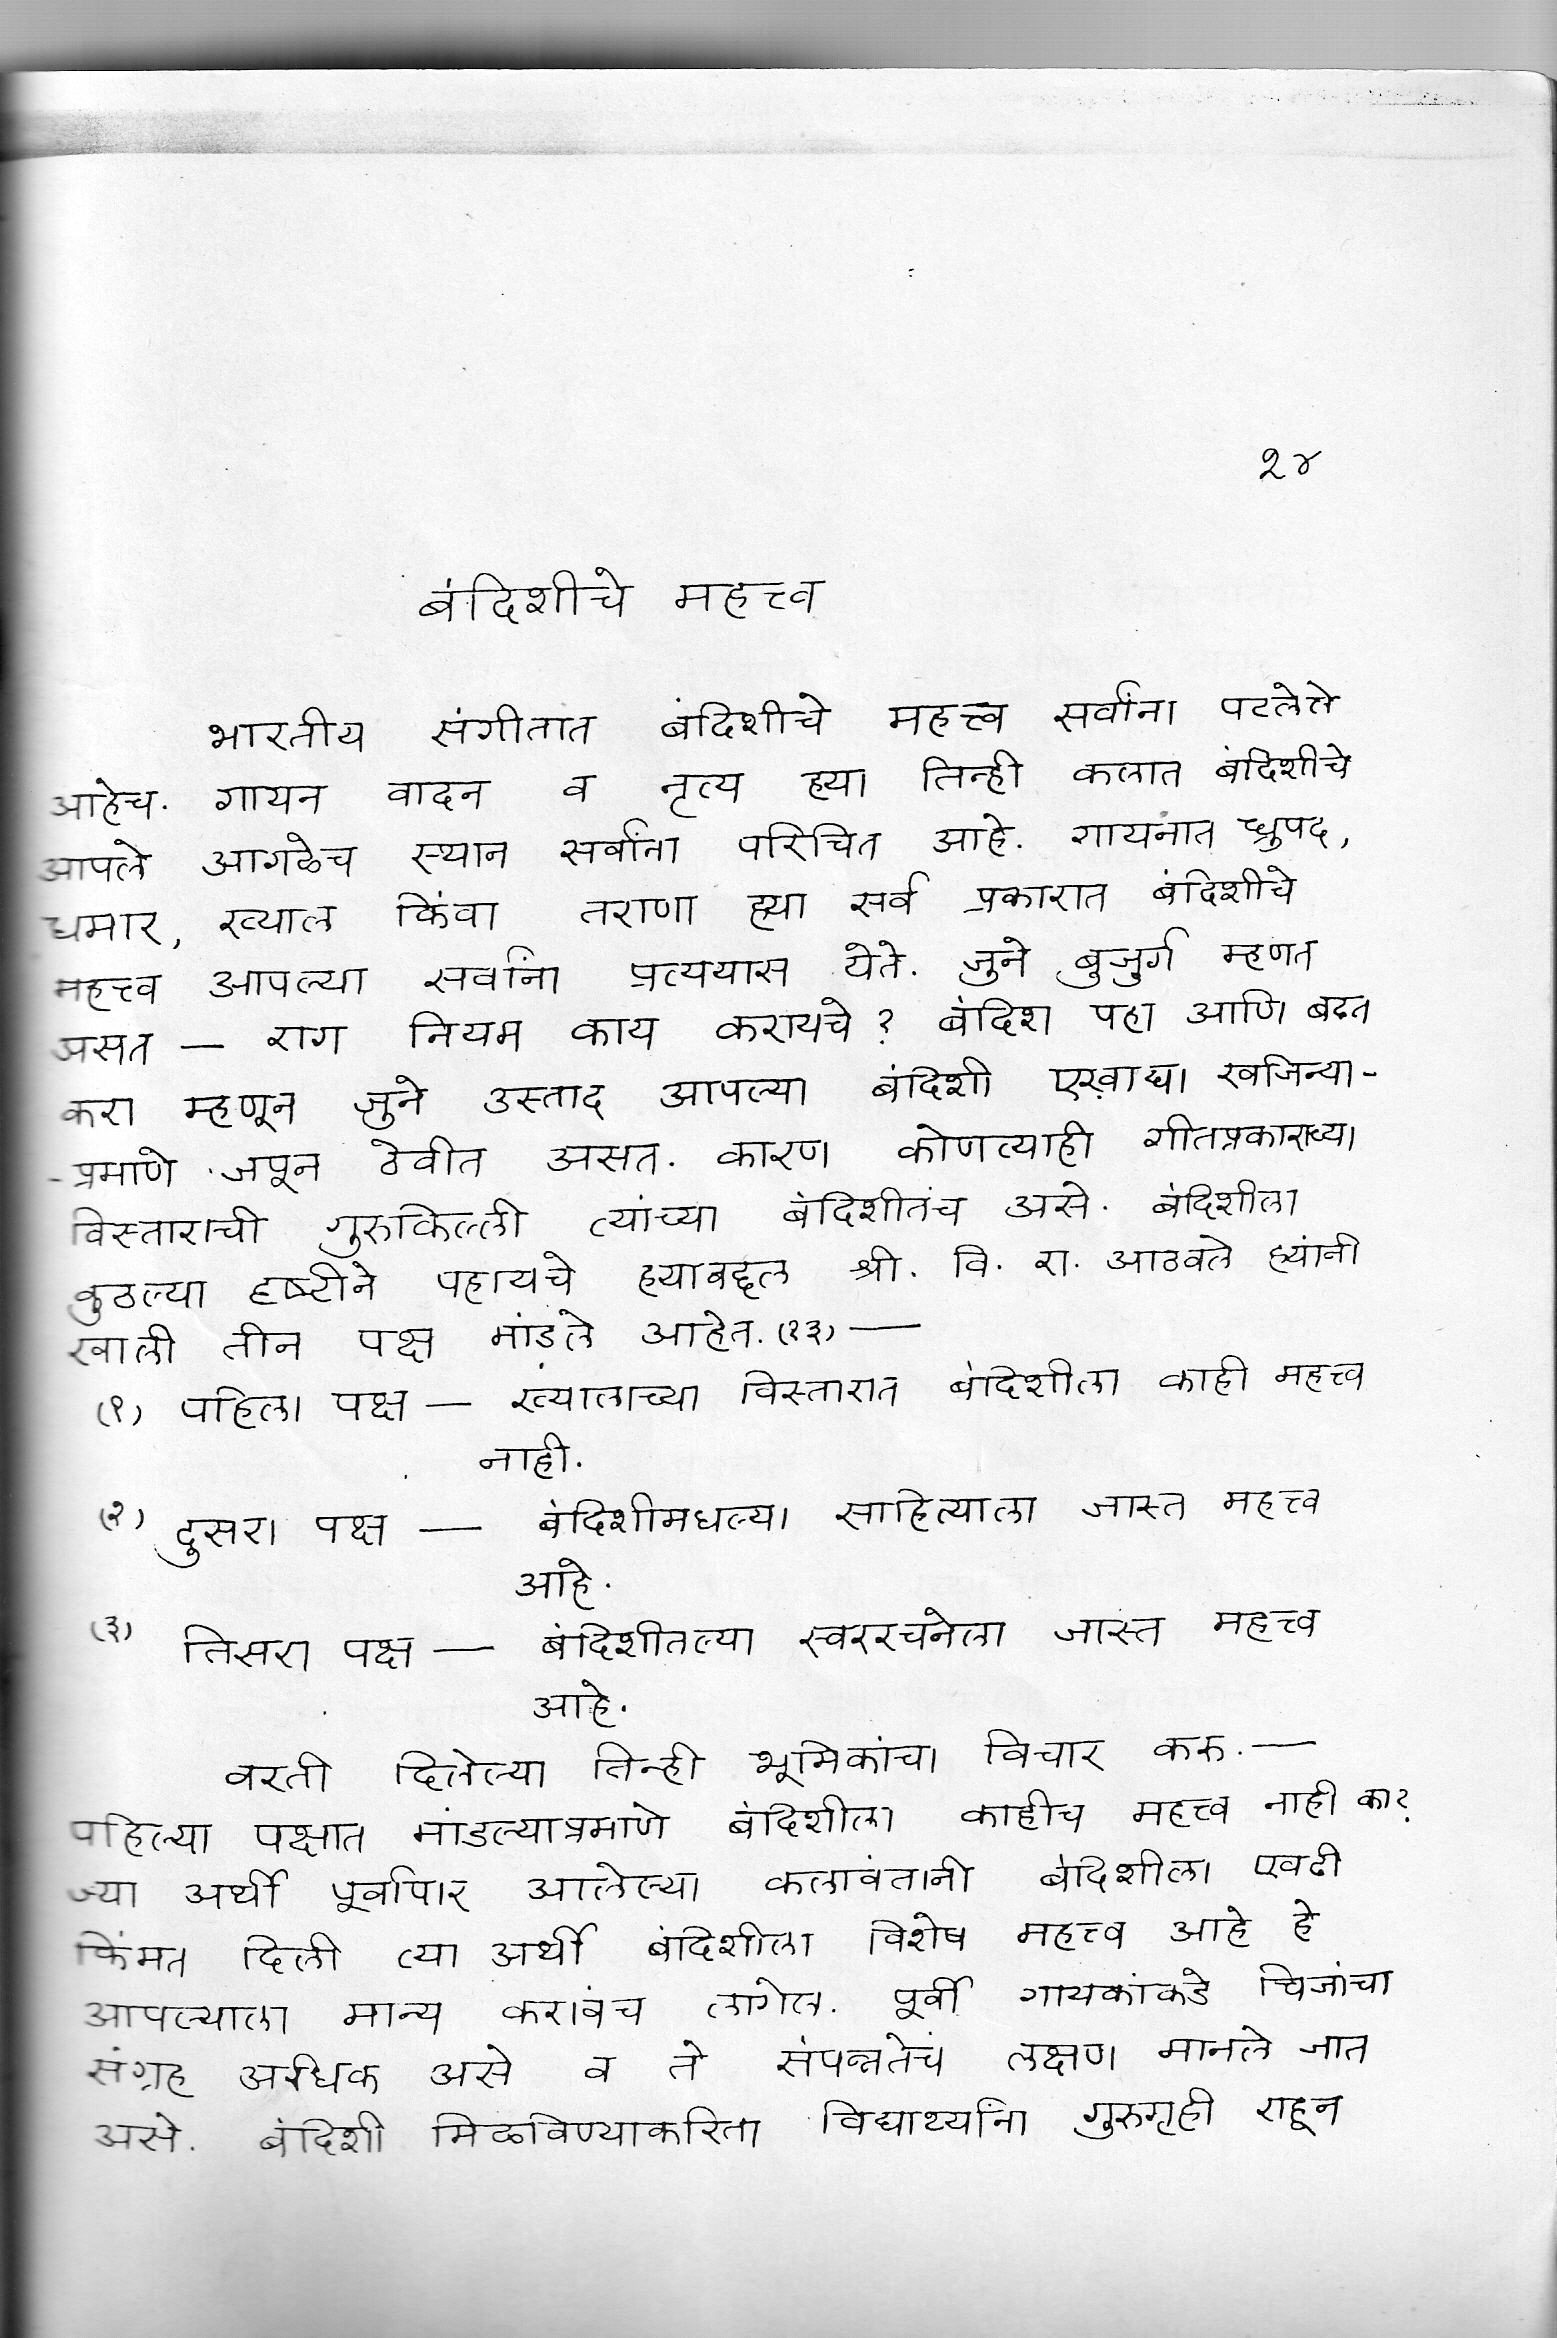 २४
बंदिशीचे महत्त्व
भारतीय संगीतात बंदिशीचे महत्त्व सर्वांना पटलेले
आहेच. गायन वादन व नृत्य ह्या तिन्ही कलात बंदिशीचे
आपले आगळेच स्थान सर्वांना परिचित आहे. गायनात ध्रुपद,
धमार, ख्याल किंवा तराणा ह्या सर्व प्रकारात बंदिशीचे
महत्त्व आपल्या सर्वांना प्रत्ययास येते. जुने बुजुर्ग म्हणत
असत — राग नियम काय करायचे? बंदिश पहा आणि बढत
करा म्हणून जुने उस्ताद आपल्या बंदिशी एखाद्या खजिन्या-
-प्रमाणे जपून ठेवीत असत. कारण कोणत्याही गीतप्रकाराच्या
विस्ताराची गुरुकिल्ली त्यांच्या बंदिशीतंच असे. बंदिशीला
कुठल्या दृष्टीने पहायचे ह्याबद्दल श्री. वि. रा. आठवले ह्यांनी
खाली तीन पक्ष मांडले आहेत. (१३) —
(१) पहिला पक्ष — ख्यालाच्या विस्तारात बंदिशीला काही महत्त्व
नाही.
(२) दुसरा पक्ष — बंदिशीमधल्या साहित्याला जास्त महत्त्व
आहे.
(३) तिसरा पक्ष — बंदिशीतल्या स्वररचनेला जास्त महत्त्व
आहे.
वरती दिलेल्या तिन्ही भूमिकांचा विचार करु. —
पहिल्या पक्षात मांडल्याप्रमाणे बंदिशीला काहीच महत्त्व नाही का?
ज्या अर्थी पूर्वापार आलेल्या कलावंतानी बंदिशीला एवढी
किंमत दिली त्या अर्थी बंदिशीला विशेष महत्त्व आहे हे
आपल्याला मान्य करावंच लागेल. पूर्वी गायकांकडे चिजांचा
संग्रह अधिक असे व ते संपन्नतेचं लक्षण मानले जात
असे. बंदिशी मिळविण्याकरिता विद्यार्थ्यांना गुरुगृही राहून